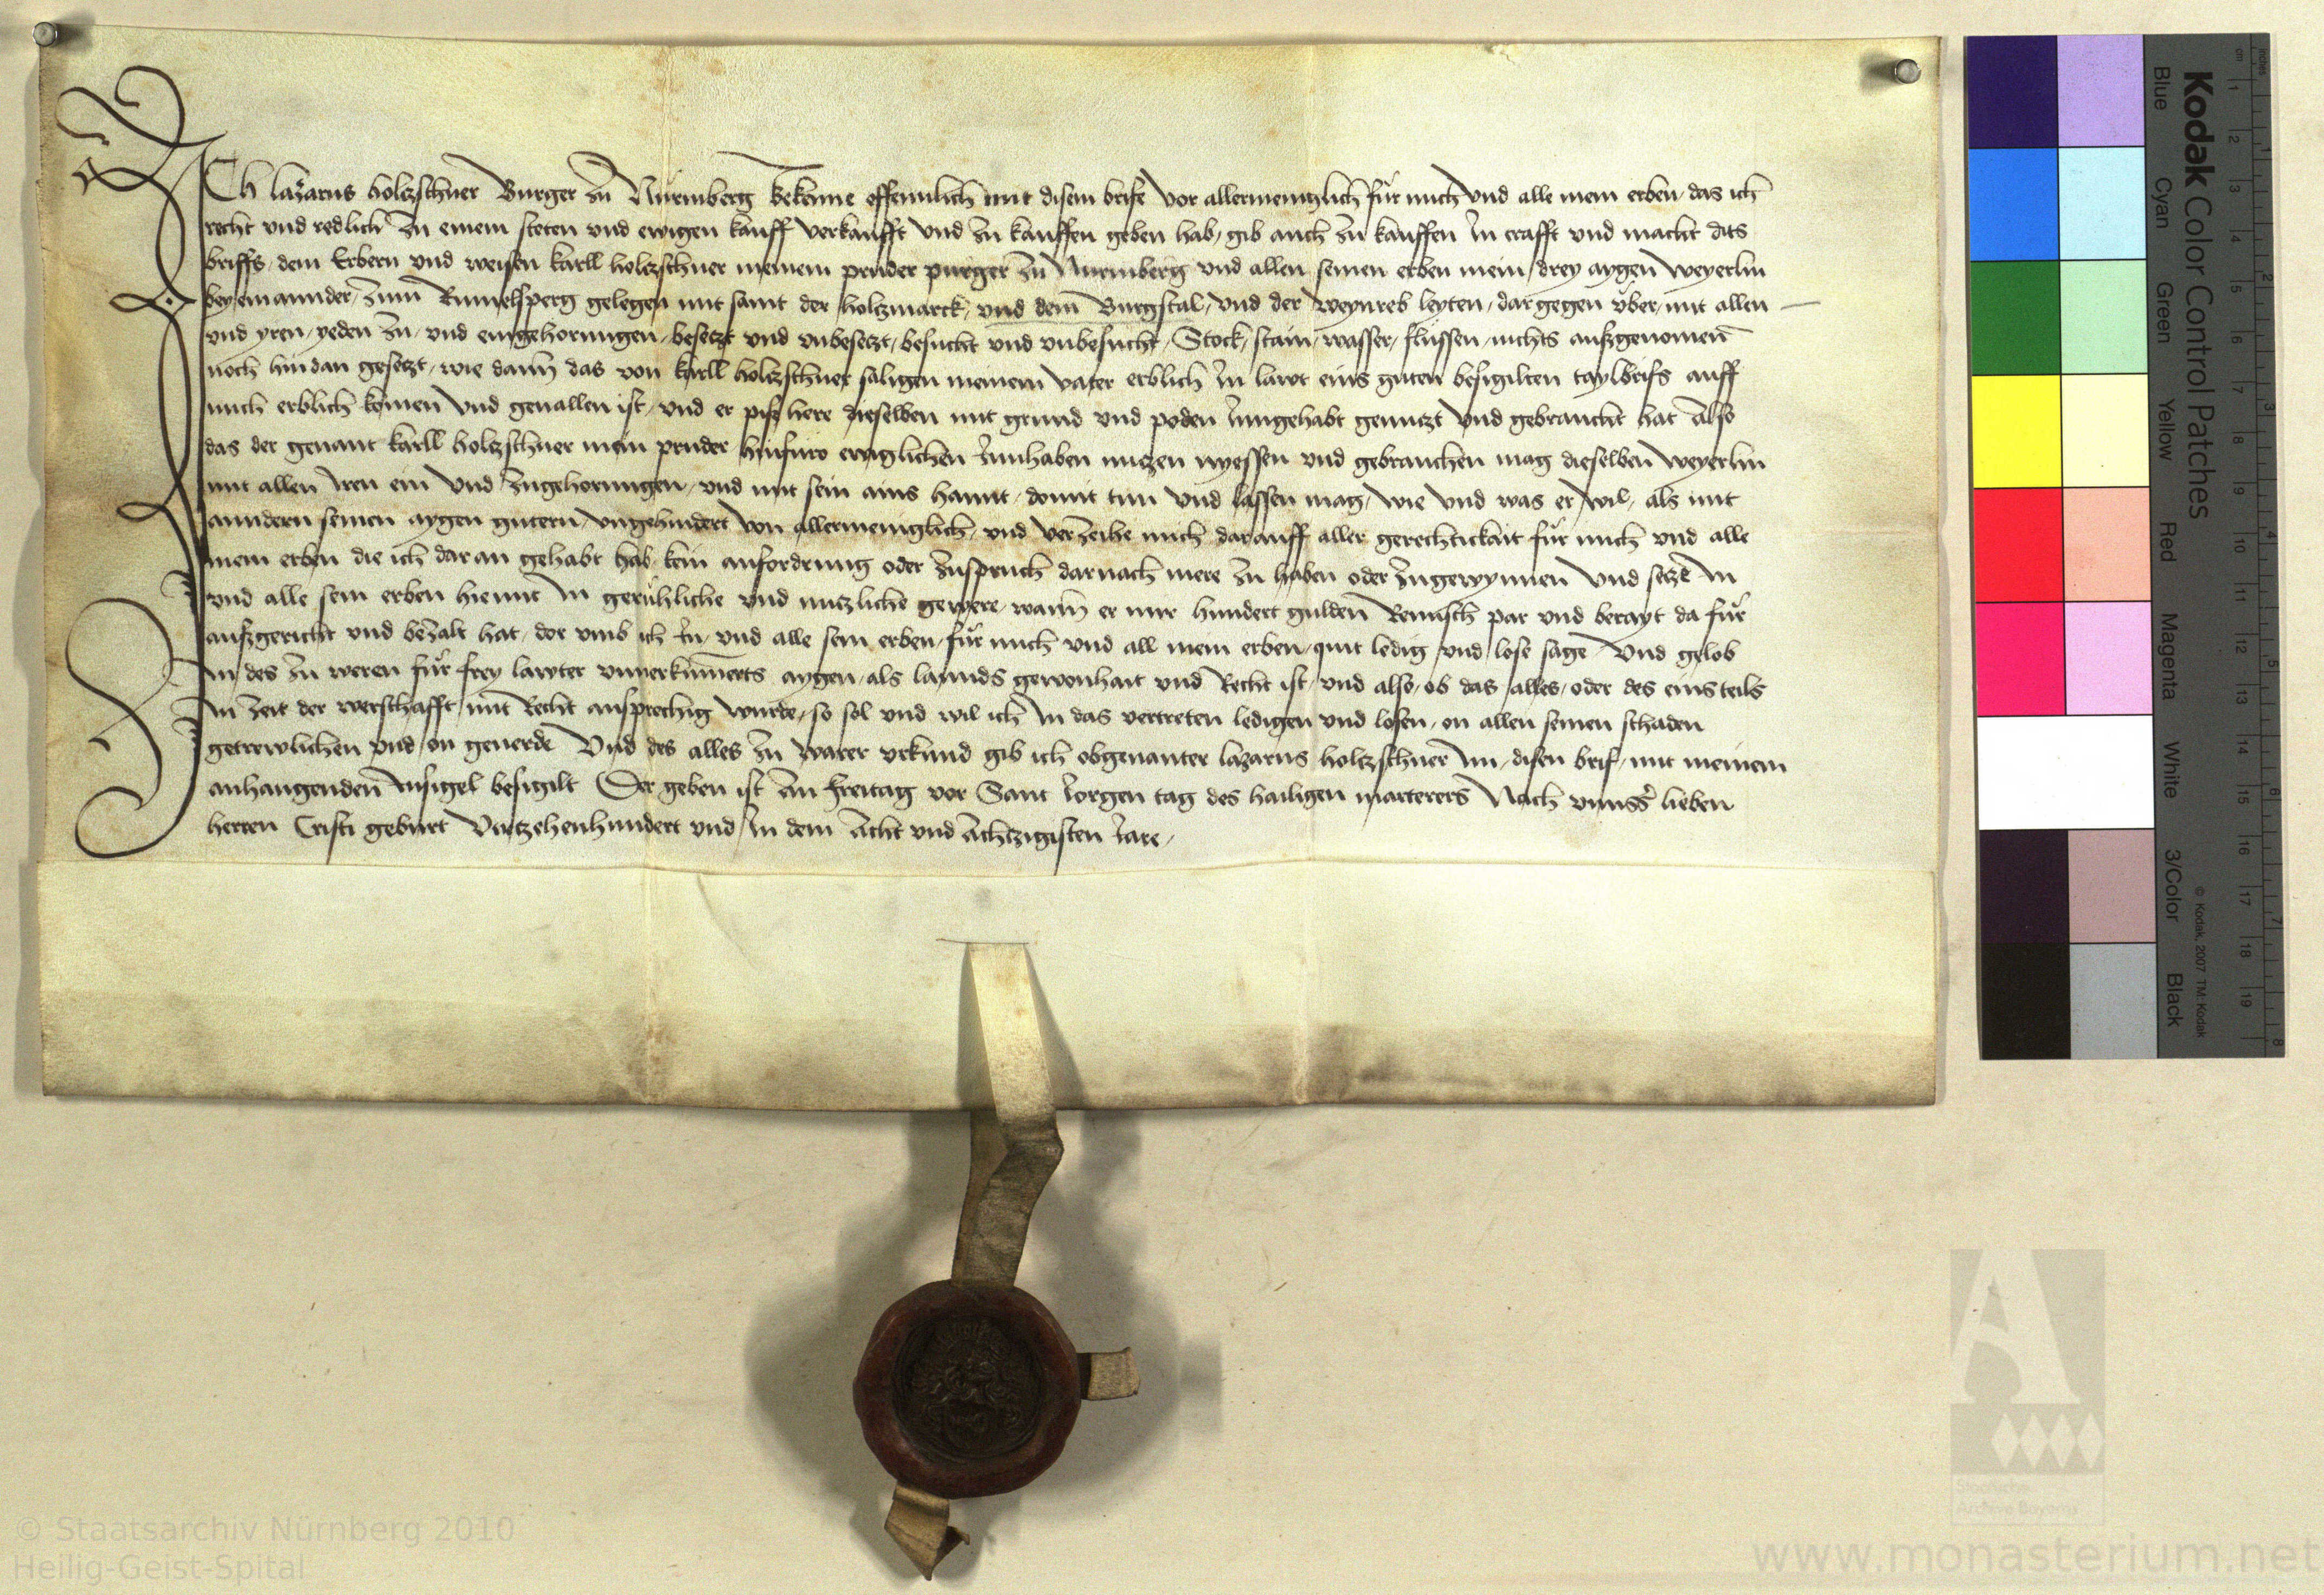 ICh lazarus holtzschuer Burger zu Nüremberg bekenne offennlich mit disem brife vor allermeniglich für mich vnd alle mein erben, das ich
recht vnd redlich zu einem steten vnd ewigen kauff verkaufft vnd zu kauffen geben hab, gib auch zu kauffen in crafft vnd macht dits
briffs, dem Erbern vnd weisen karll holtzschuer meinem pruder purger zu Nuremberg vnd allen seinen erben mein drey aygen weyerlin
bey einannder, zum Rumelsperg gelegen mit samt der holtzmarck, vnd dem Burgstal, vnd der weynreb leyten, dar gegen über, mit allen
vnd yren, yeden zu, vnd eingehorungen, besetzt vnd vnbesetzt, besucht vnd vnbesucht, Stock, stain, wasser, flüssen, nichts außgenomen
noch hindan gesetzt, wie dann das von karll holtzschuer saligen meinem vater erblich in lawt eins guten besigilten taylbrifs auff
mich erblich komen vnd geuallen ist, vnd er piß here dieselben mit grund vnd poden inngehabt genutzt vnd gebraucht hat Also
das der genant karll holtzschuer mein pruder hinfuro ewiglichen innhaben nutzen nyessen vnd gebrauchen mag dieselben weyerlin
mit allen iren ein vnd zugehorungen, vnd mit sein ains hannt, domit tun vnd lassen mag, wie vnd was er wil, als mit
anndern seinen aygen gutern, vngehindert von allermeniglich, vnd verzeihe mich darauff aller gerechtickait für mich vnd alle
mein erben die ich dar an gehabt hab, kein anfordrung oder zuspruch darnach mere zu haben oder zugewynnen vnd setze in
vnd alle sein erben hiemit in gerühliche vnd nutzliche gewere, wann er mir hundert gulden Reinisch par vnd berayt da für
außgericht vnd bezalt hat, dor vmb ich in, vnd alle sein erben, für mich vnd all mein erben, quit ledig vnd lose sage Vnd gelob
in des zu weren für frey lawter vnuerkümerts aygen, als lannds gewonhait vnd Recht ist, vnd also, ob das alles, oder des eins teils
in zeit der werschafft mit Recht ansprechig wurde, so sol vnd wil ich in das vertreten ledigen vnd losen, on allen seinen schaden
getrewlichen vnd on geuerde Vnd des alles zu warer vrkund gib ich obgenanter lazarus holtzschuer im, disen brif, mit meinem
anhangenden insigel besigilt Der geben ist An freitag vor Sant Jorgen tag des hailigen marterers Nach vnnsers lieben
herren Cristi geburt Virtzehenhundert vnd in dem Acht vnd Achtzigisten iare,
Kodak Color Control Patches
Blue Cyan Green Yellow Red Magenta White 3/Color Black
© Kodak, 2007 TM: Kodak
inches 1 2 3 4 5 6 7 8
cm 1 2 3 4 5 6 7 8 9 10 11 12 13 14 15 16 17 18 19
Staatliche
Archive Bayerns
© Staatsarchiv Nürnberg 2010
Heilig-Geist-Spital
www.monasterium.net